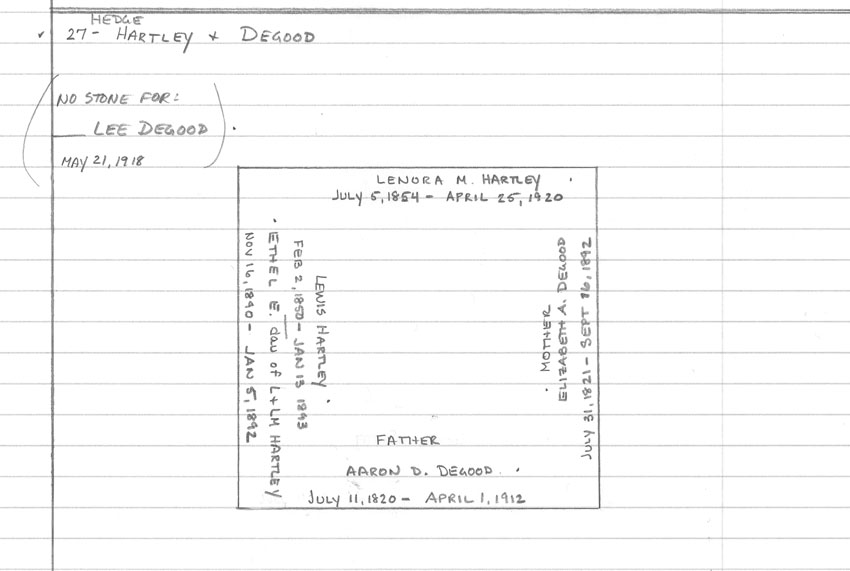 HEDGE
✓ 27- HARTLEY + DEGOOD
NO STONE FOR:
LEE DEGOOD
MAY 21, 1918
LENORA M. HARTLEY
JULY 5, 1854 - APRIL 25, 1920
LEWIS HARTLEY
FEB 2, 1850 - JAN 13 1893
ETHEL E. dau of L+LM HARTLEY
NOV 16, 1890 - JAN 5, 1892
MOTHER
ELIZABETH A. DEGOOD
JULY 31, 1821 - SEPT 26, 1892
FATHER
AARON D. DEGOOD
JULY 11, 1820 - APRIL 1, 1912